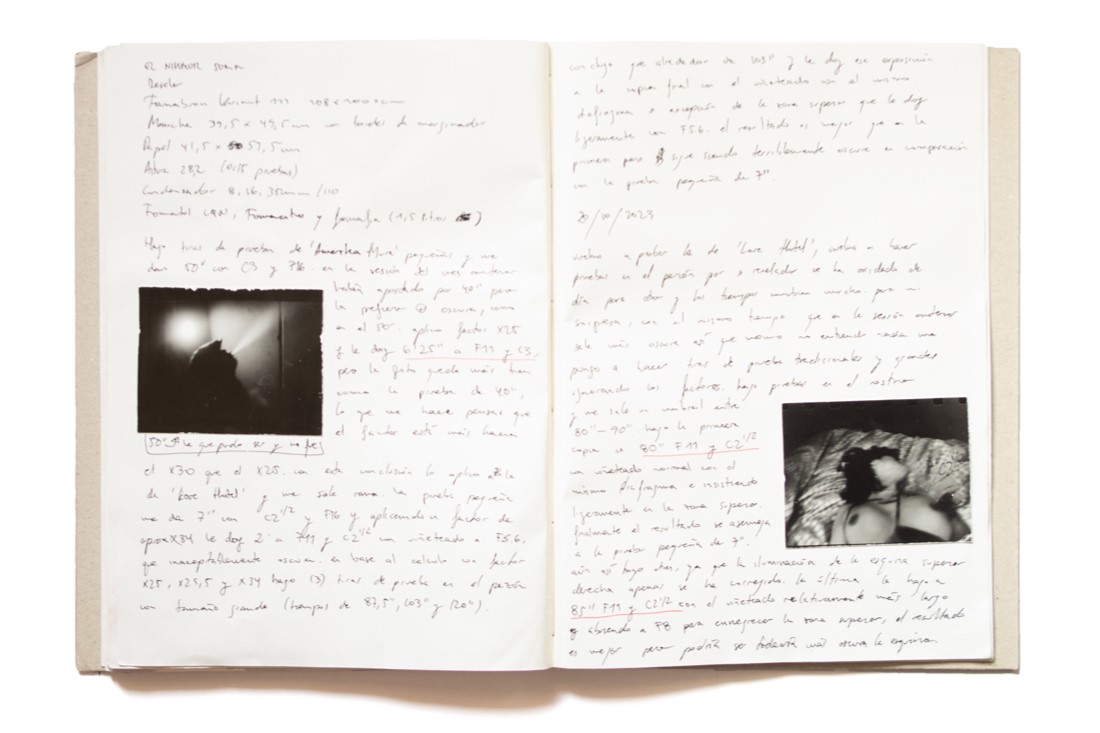 Revelar
Fomabrom Variant 111
Mancha 39,5 x 49,5 cm con bordes de marginador
Papel 41,5 x 51,5 cm
Altura 282 (0:15 pruebas)
Condensador 8, 16, 35mm /110
Fomatol LQN, Fomacitro y fomafix (1,5 litros)
Hago tiras de prueba de 'America Mura' pequeñas y me
dan 50" con C3 y F16. en la sesión del mes anterior
había apostado por 40" pero
la prefiero oscura, como
en el 50". aplico factor X25
y le doy 6'25" a F11 y C3,
pero la foto queda más bien
como la prueba de 40",
lo que me hace pensar que
el factor está más hacia
50" la que pudo ser y no fue
el X30 que el X25. con esta conclusión lo aplico a la
de 'Love Hotel' y me sale rana. la prueba pequeña
me da 7" con C2 1/2 y F16 y, aplicando un factor de
aprox X34 le doy 2' a F11 y C2 1/2 con viñeteado a F5.6,
que inaceptablemente oscura. en base al calculo con factor
X25, X29,5 y X34 hago (3) tiras de prueba en el pezón
con tamaño grande (tiempos de 87,5", 103" y 120").
concluyo que alrededor de 103" y le doy esa exposición
a la copia final con el viñeteado con el mismo
diafragma a excepción de la zona superior que le doy
ligeramente con F5.6. el resultado es mejor que en la
primera pero sigue siendo terriblemente oscura en comparación
con la prueba pequeña de 7".
20/10/2023
vuelvo a probar la de 'Love Hotel', vuelvo a hacer
pruebas en el pezón por si revelador se ha oxidado de
día para otro y los tiempos cambian mucho. para mi
sorpresa, con el mismo tiempo que en la sesión anterior
sale más oscura así que como no entiendo nada me
pongo a hacer tiras de prueba tradicionales y grandes
ignorando los factores. hago pruebas en el rostro
y me sale un umbral entre
80"-90". hago la primera
copia a 80" F11 y C2 1/2
con viñeteado normal con el
mismo diafragma e insistiendo
ligeramente en la zona superior.
finalmente el resultado se asemeja
a la prueba pequeña de 7".
aún así hago otras, ya que la iluminación de la esquina superior
derecha apenas se ha corregido. la última la hago a
85" F11 y C2 1/2 con el viñeteado relativamente más largo
y abriendo a F8 para ennegrecer la zona superior, el resultado
es mejor pero podría ser todavía más oscura la esquina.